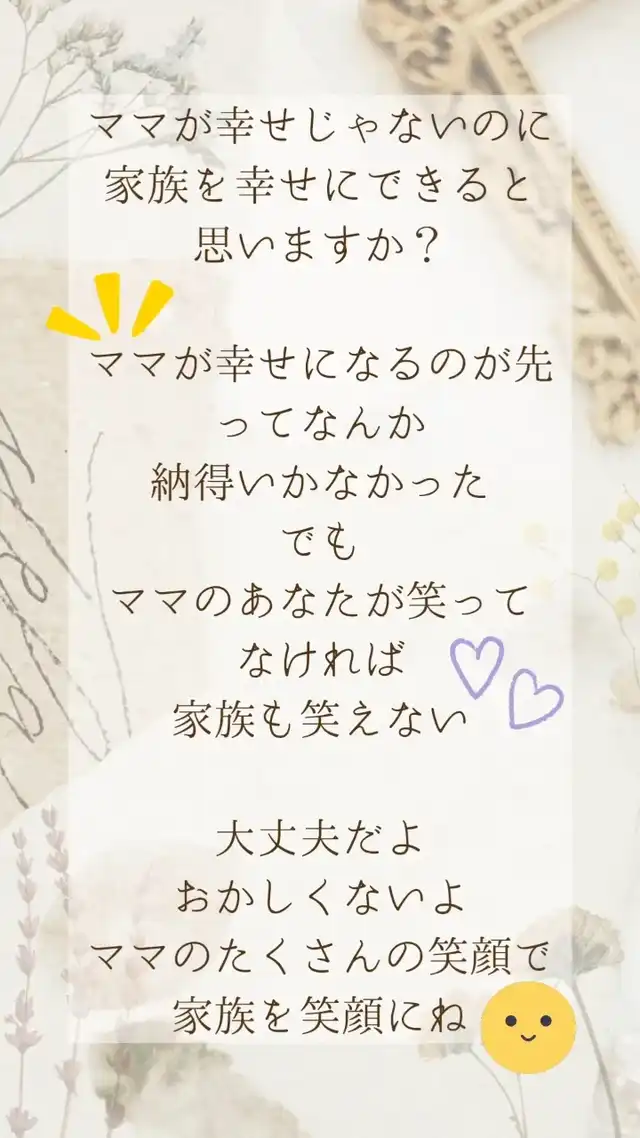 ママが幸せじゃないのに
家族を幸せにできると
思いますか？
ママが幸せになるのが先
ってなんか
納得いかなかった
でも
ママのあなたが笑って
なければ
家族も笑えない
大丈夫だよ
おかしくないよ
ママのたくさんの笑顔で
家族を笑顔にね